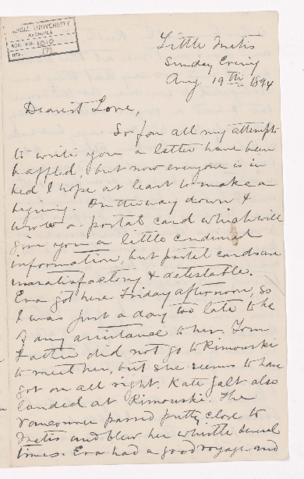 McGILL UNIVERSITY
ARCHIVES
ACC. NO. 1010
Little Metis
Sunday Evening
Aug 19th 1894
Dearest Love,
So far all my attempts
to write you a letter have been
baffled, but now everyone is in
bed I hope at least to make a
beginning. On the way down I
wrote a postal card which will
give you a little condensed
information, but postal cards are
unsatisfactory & detestable.
Eva got here Friday afternoon, so
I was just a day too late to be
of any assistance to her. Your
Father did not go to Rimouski
to meet her, but she seems to have
got on all right. Kate Galt also
landed at Rimouski. The
Vancouver passed pretty close to
Metis and blew her whistle several
times. Eva had a good voyage and